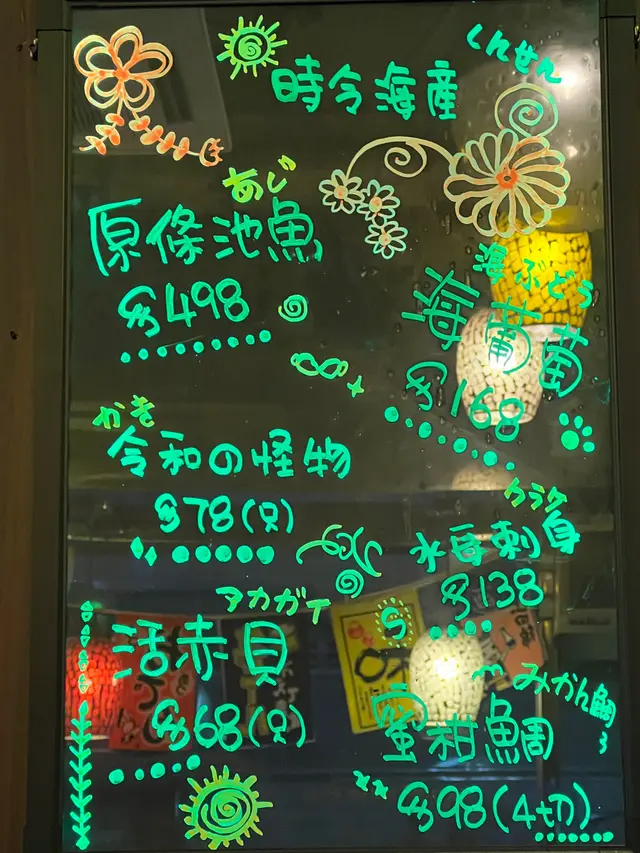 くんせん
時令海産
あじ
原條池魚
$498
海ぶどう
海葡萄
$168
かき
令和の怪物
$78(只)
クラゲ
水母刺身
$138
アカガイ
活赤貝
$68(只)
みかん鯛
蜜柑鯛
$98(4切)